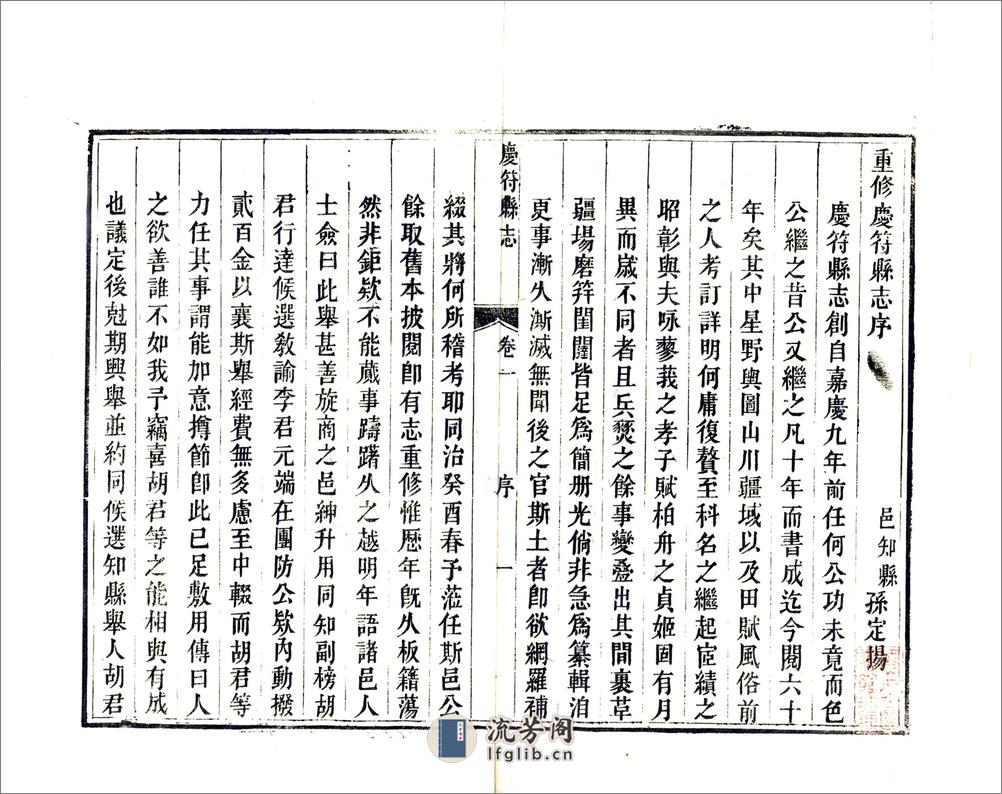 重修慶符縣志序
邑知縣孫定揚
慶符縣志創自嘉慶九年前任何公功未竟而色
公繼之昔公又繼之凡十年而書成迄今閱六十
年矣其中星野輿圖山川疆域以及田賦風俗前
之人考訂詳明何庸復贅至科名之繼起宦績之
昭彰與夫咏蓼莪之孝子賦柏舟之貞姬固有月
異而歲不同者且兵燹之餘事變疊出其間裹革
疆場磨笄閨闥皆足為簡册光倘非急為纂輯洎
更事漸久澌滅無聞後之官斯土者卽欲網羅補
慶符縣志
卷一
序
一
綴其將何所稽考耶同治癸酉春予蒞任斯邑公
餘取舊本披閱卽有志重修惟歷年旣久板籍蕩
然非鉅欵不能蕆事躊躇久之越明年語諸邑人
士僉曰此舉甚善旋商之邑紳升用同知副榜胡
君行達候選敎諭李君元端在團防公欵內動撥
貳百金以襄斯舉經費無多慮至中輟而胡君等
力任其事謂能加意撙節卽此已足敷用傳曰人
之欲善誰不如我予竊喜胡君等之能相與有成
也議定後尅期興舉並約同候選知縣舉人胡君
流芳阁
lfglib.cn